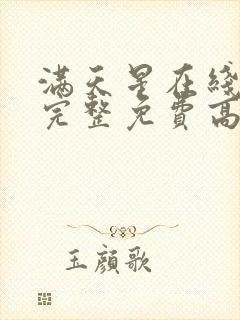 满天星在綫
完整免費高
玉顔歌